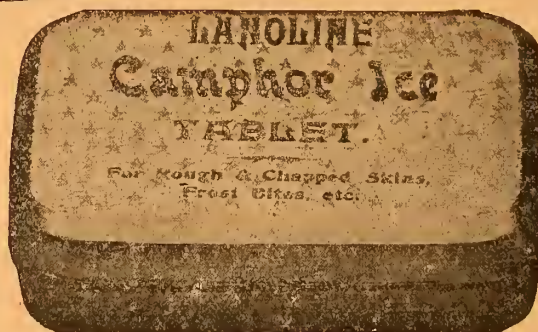 LANOLINE
Camphor Ice
TABLET.
For Rough & Chapped Skins,
Frost Bites, etc.